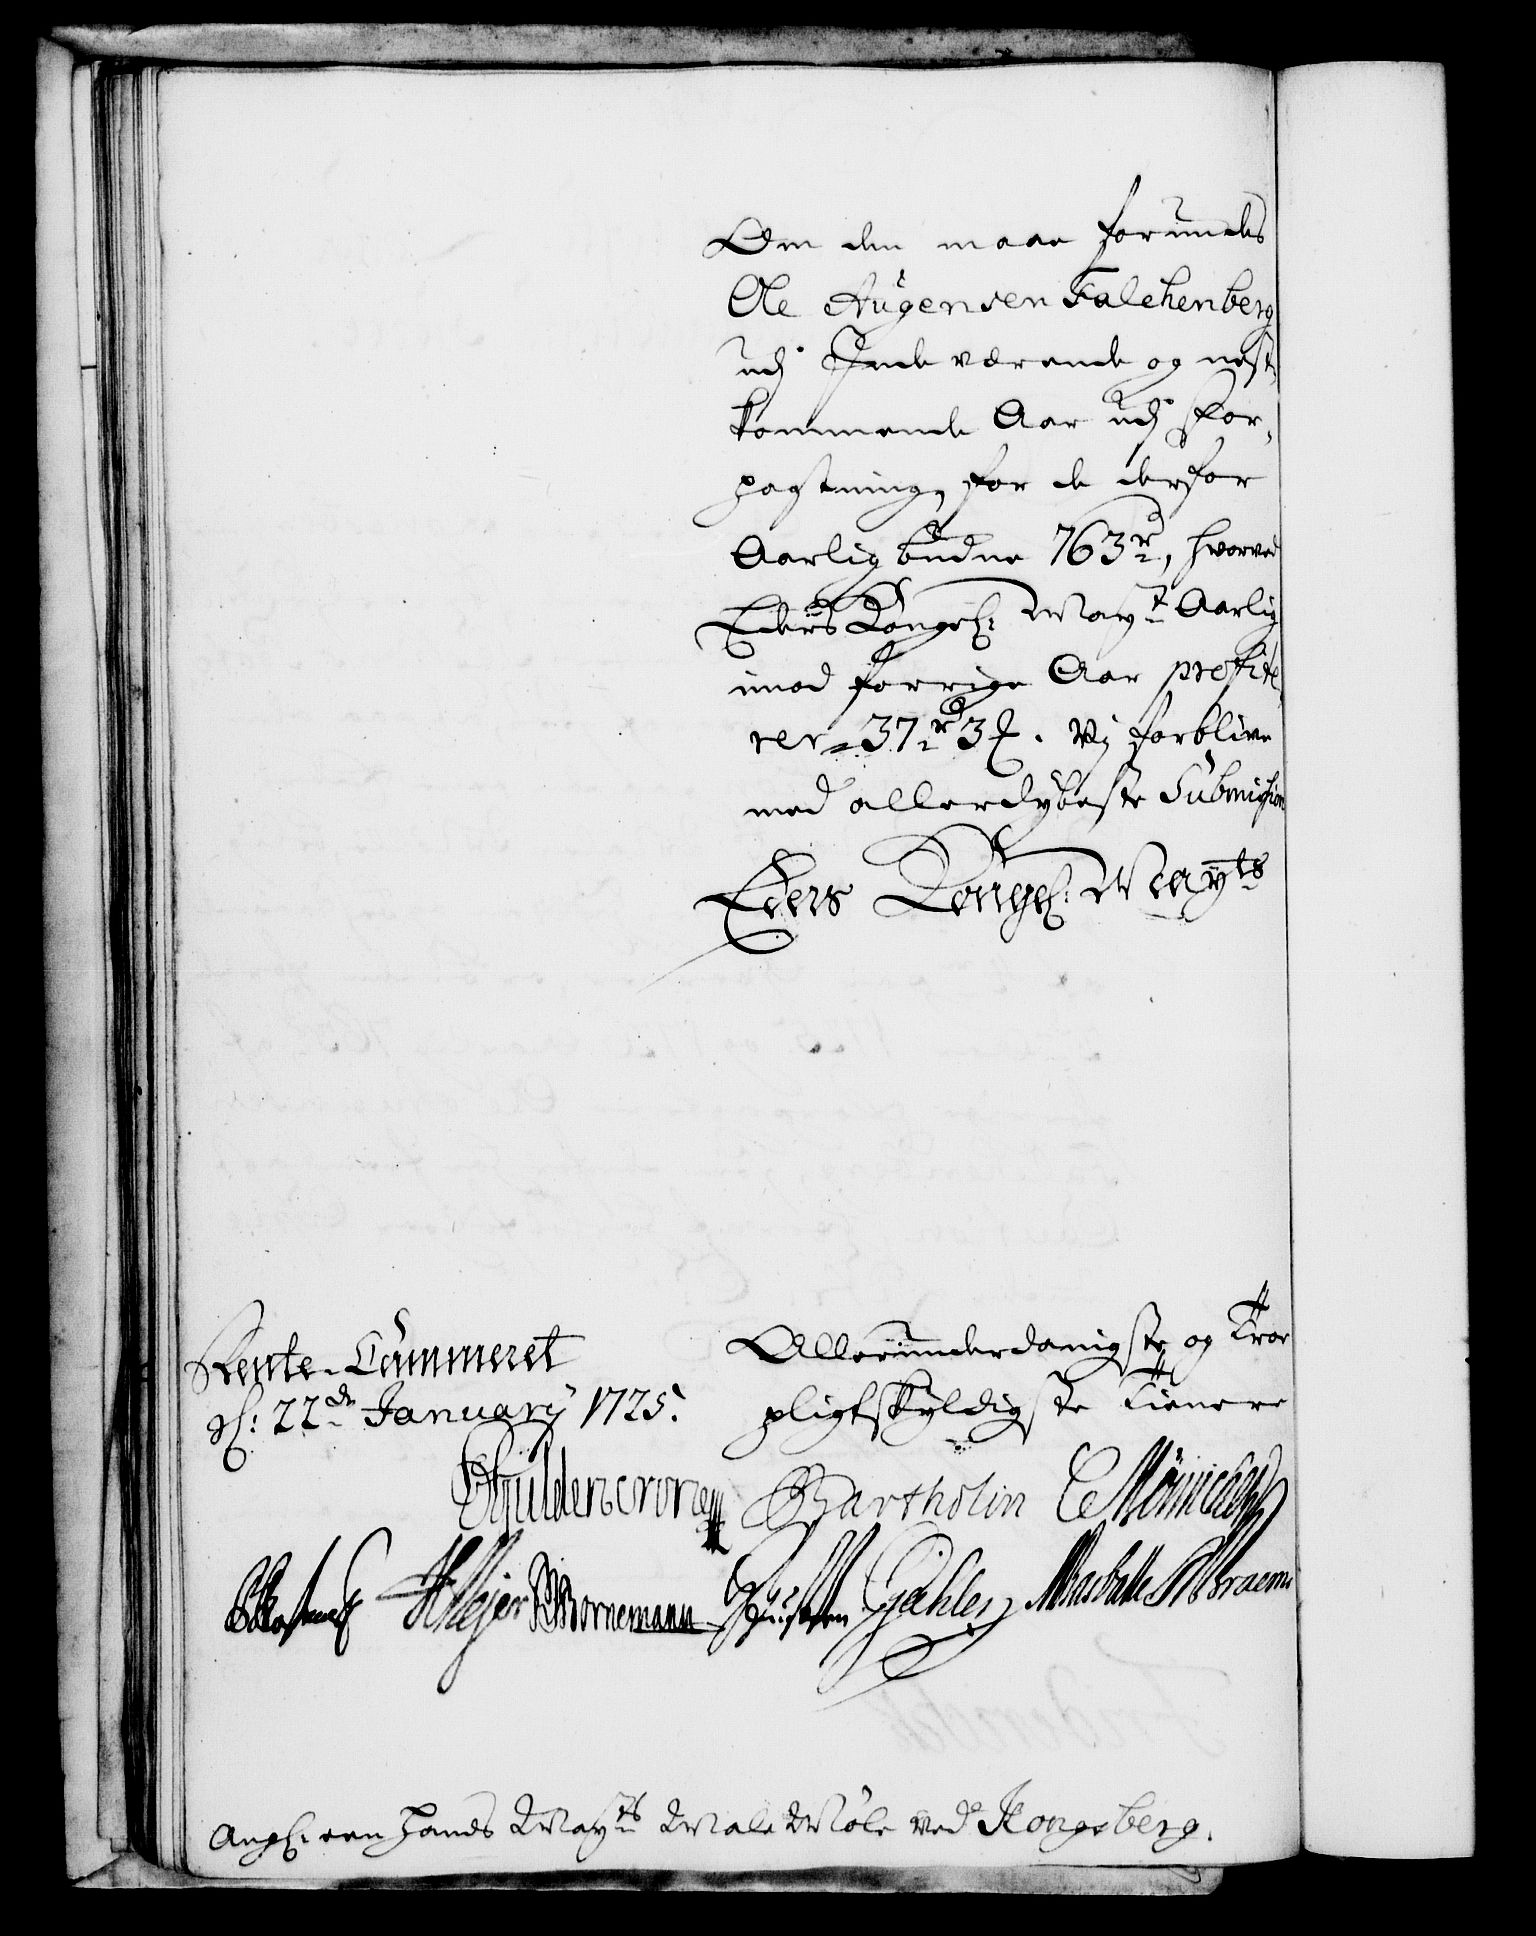 Om den maae forundes
Ole Augensen Falchenberg
udj Inde værende og nest,
kommende Aar udj for,
pagtning, for de derfor
Aarlig budne 763 rd, hvorved
Eders Kongl: Mayt Aarlig
imod forrige Aar profite,
rer 37 rd 3 £. Vj forblive
med allerdybeste Submission
Eders Kongl: Mayts
Rente-Cammeret
d: 22de January 1725.
Allerunderdanigste og Troe
pligtskyldigste Tienere
Gyldencrone Bartholin
HMejer Bornemann Gähler
Angl: een hands Mayts Male Møle ved Kongsberg.